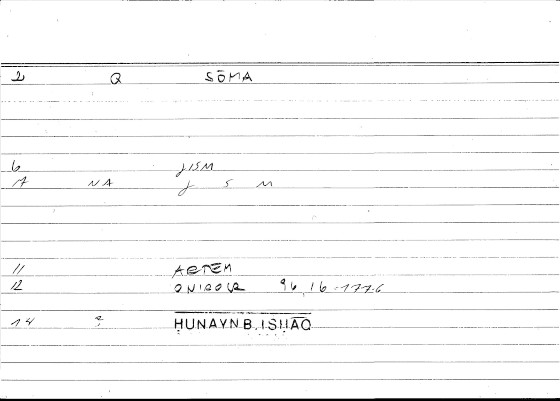 2 Q SŌMA
6 JISM
A NA J S M
11 ARTEM
12 ONIROCR 96,16-1776
14 ? ḤUNAYN B. ISḤĀQ